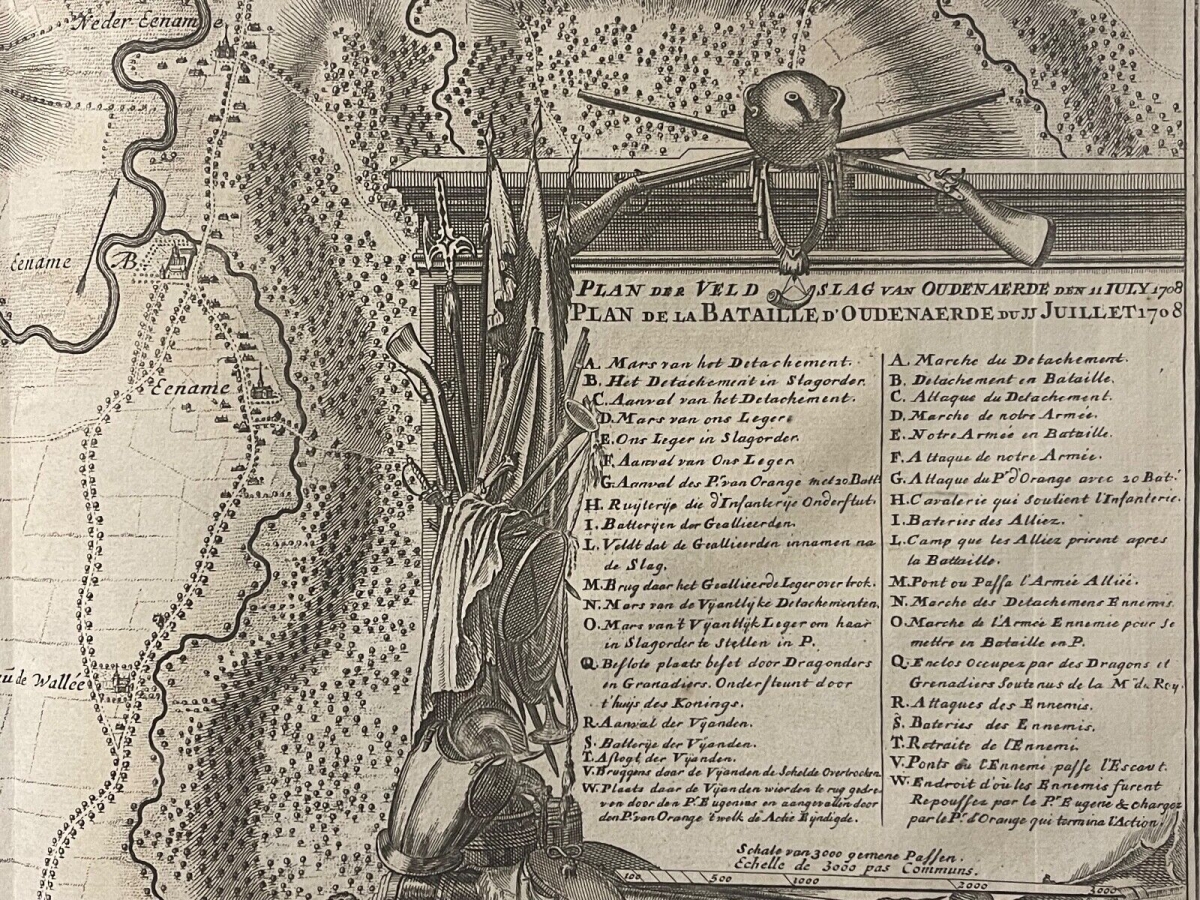 Neder-Eename
Eename
AB.
Eename
u de Wallée
PLAN DER VELD SLAG VAN OUDENAERDE DEN 11 IULY 1708
PLAN DE LA BATAILLE D'OUDENAERDE DU JJ JUILLET 1708
A. Mars van het Detachement.
B. Het Detachement in Slagorder.
C. Aanval van het Detachement.
D. Mars van ons Leger
E. Ons Leger in Slagorder.
F. Aanval van Ons Leger
G. Aanval des Pr. van Orange met 20 Batt
H. Ruyterije die d'Infanterije Onderstut.
I. Batterijen der Geallieerden.
L. Veldt dat de Geallieerden innamen na
de Slag.
M. Brug daar het Gealleerde Leger over trok.
N. Mars van de Vyantlyke Detachementen,
O. Mars van't Vyantlyk Leger om haar
in Slagorder te Stellen in P.
Q. Beslote plaats beset door Dragonders
en Granadiers. Ondersteunt door
t huys des Konings.
R. Aanval der Vyanden.
S. Batterije der Vyanden.
T. Aftogt der Vyanden.
V. Bruggens daar de Vyanden de Schelde Overtrocken
W. Plaats daar de Vyanden wierden te rug gedre-
ven door den Pr. Eugenius en aangevallen door
den P. van Orange 't welk de Actie Eyndigde.
A. Marche du Detachement.
B. Detachement en Bataille.
C. Attaque du Detachement.
D. Marche de notre Armée.
E. Notre Armée en Bataille.
F. Attaque de notre Armée.
G. Attaque du Pr d'Orange avec 20 Bat.
H. Cavalerie qui soutient l'Infanterie.
I. Bateries des Alliez.
L. Camp que les Alliez prirent apres
la Battaille.
M. Pont ou Passa l'Armée Alliée.
N. Marche des Detachemens Ennemis
O. Marche de l'Armée Ennemie pour se
mettre en Bataille en P.
Q. Enclos Occupez par des Dragons et
Grenadiers Soutenus de la Mn du Roy.
R. Attaques des Ennemis.
S. Bateries des Ennemis.
T. Retraite de l'Ennemi.
V. Ponts ou l'Ennemi passe l'Escaut.
W. Endroit d'où les Ennemis furent
Repoussez par le Pr Eugene & chargez
par le Pr. d'Orange qui termina l'Action.
Schale van 3000 gemene Passen.
Echelle de 3000 pas Communs.
100 500 1000 2000 3000